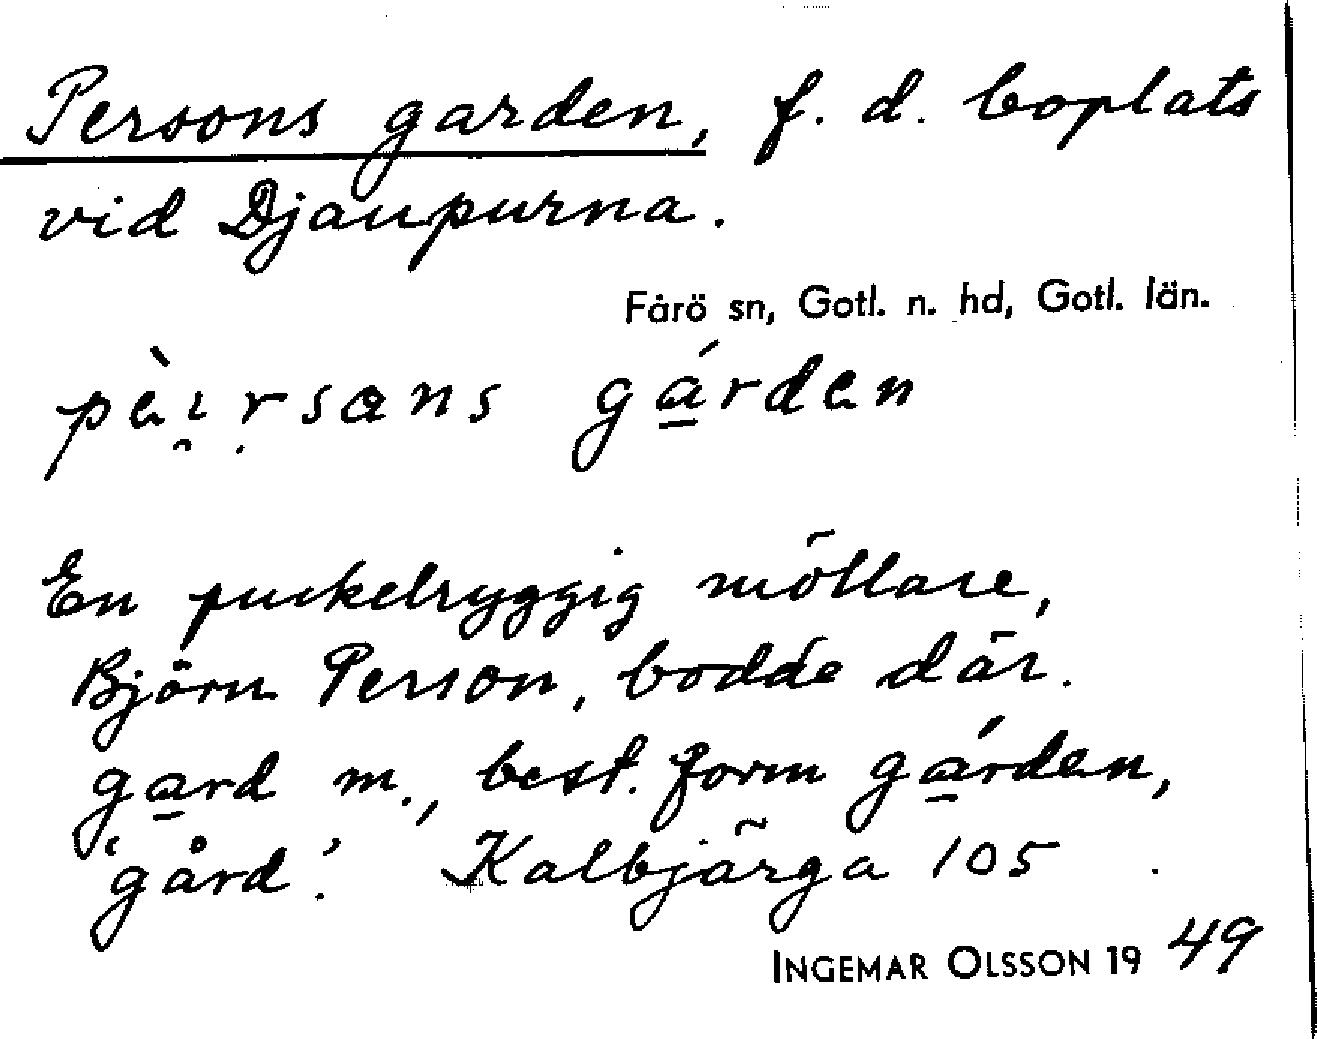 Persons garden, f. d. boplats
vid Djaupurna.
Fårö sn, Gotl. n. hd, Gotl. län.
pèi̯ṛsans gárden
En puckelryggig möllare,
Björn Person, bodde där.
gard m., best. form gárden,
'gård'. Kalbjärga 105.
INGEMAR OLSSON 1949